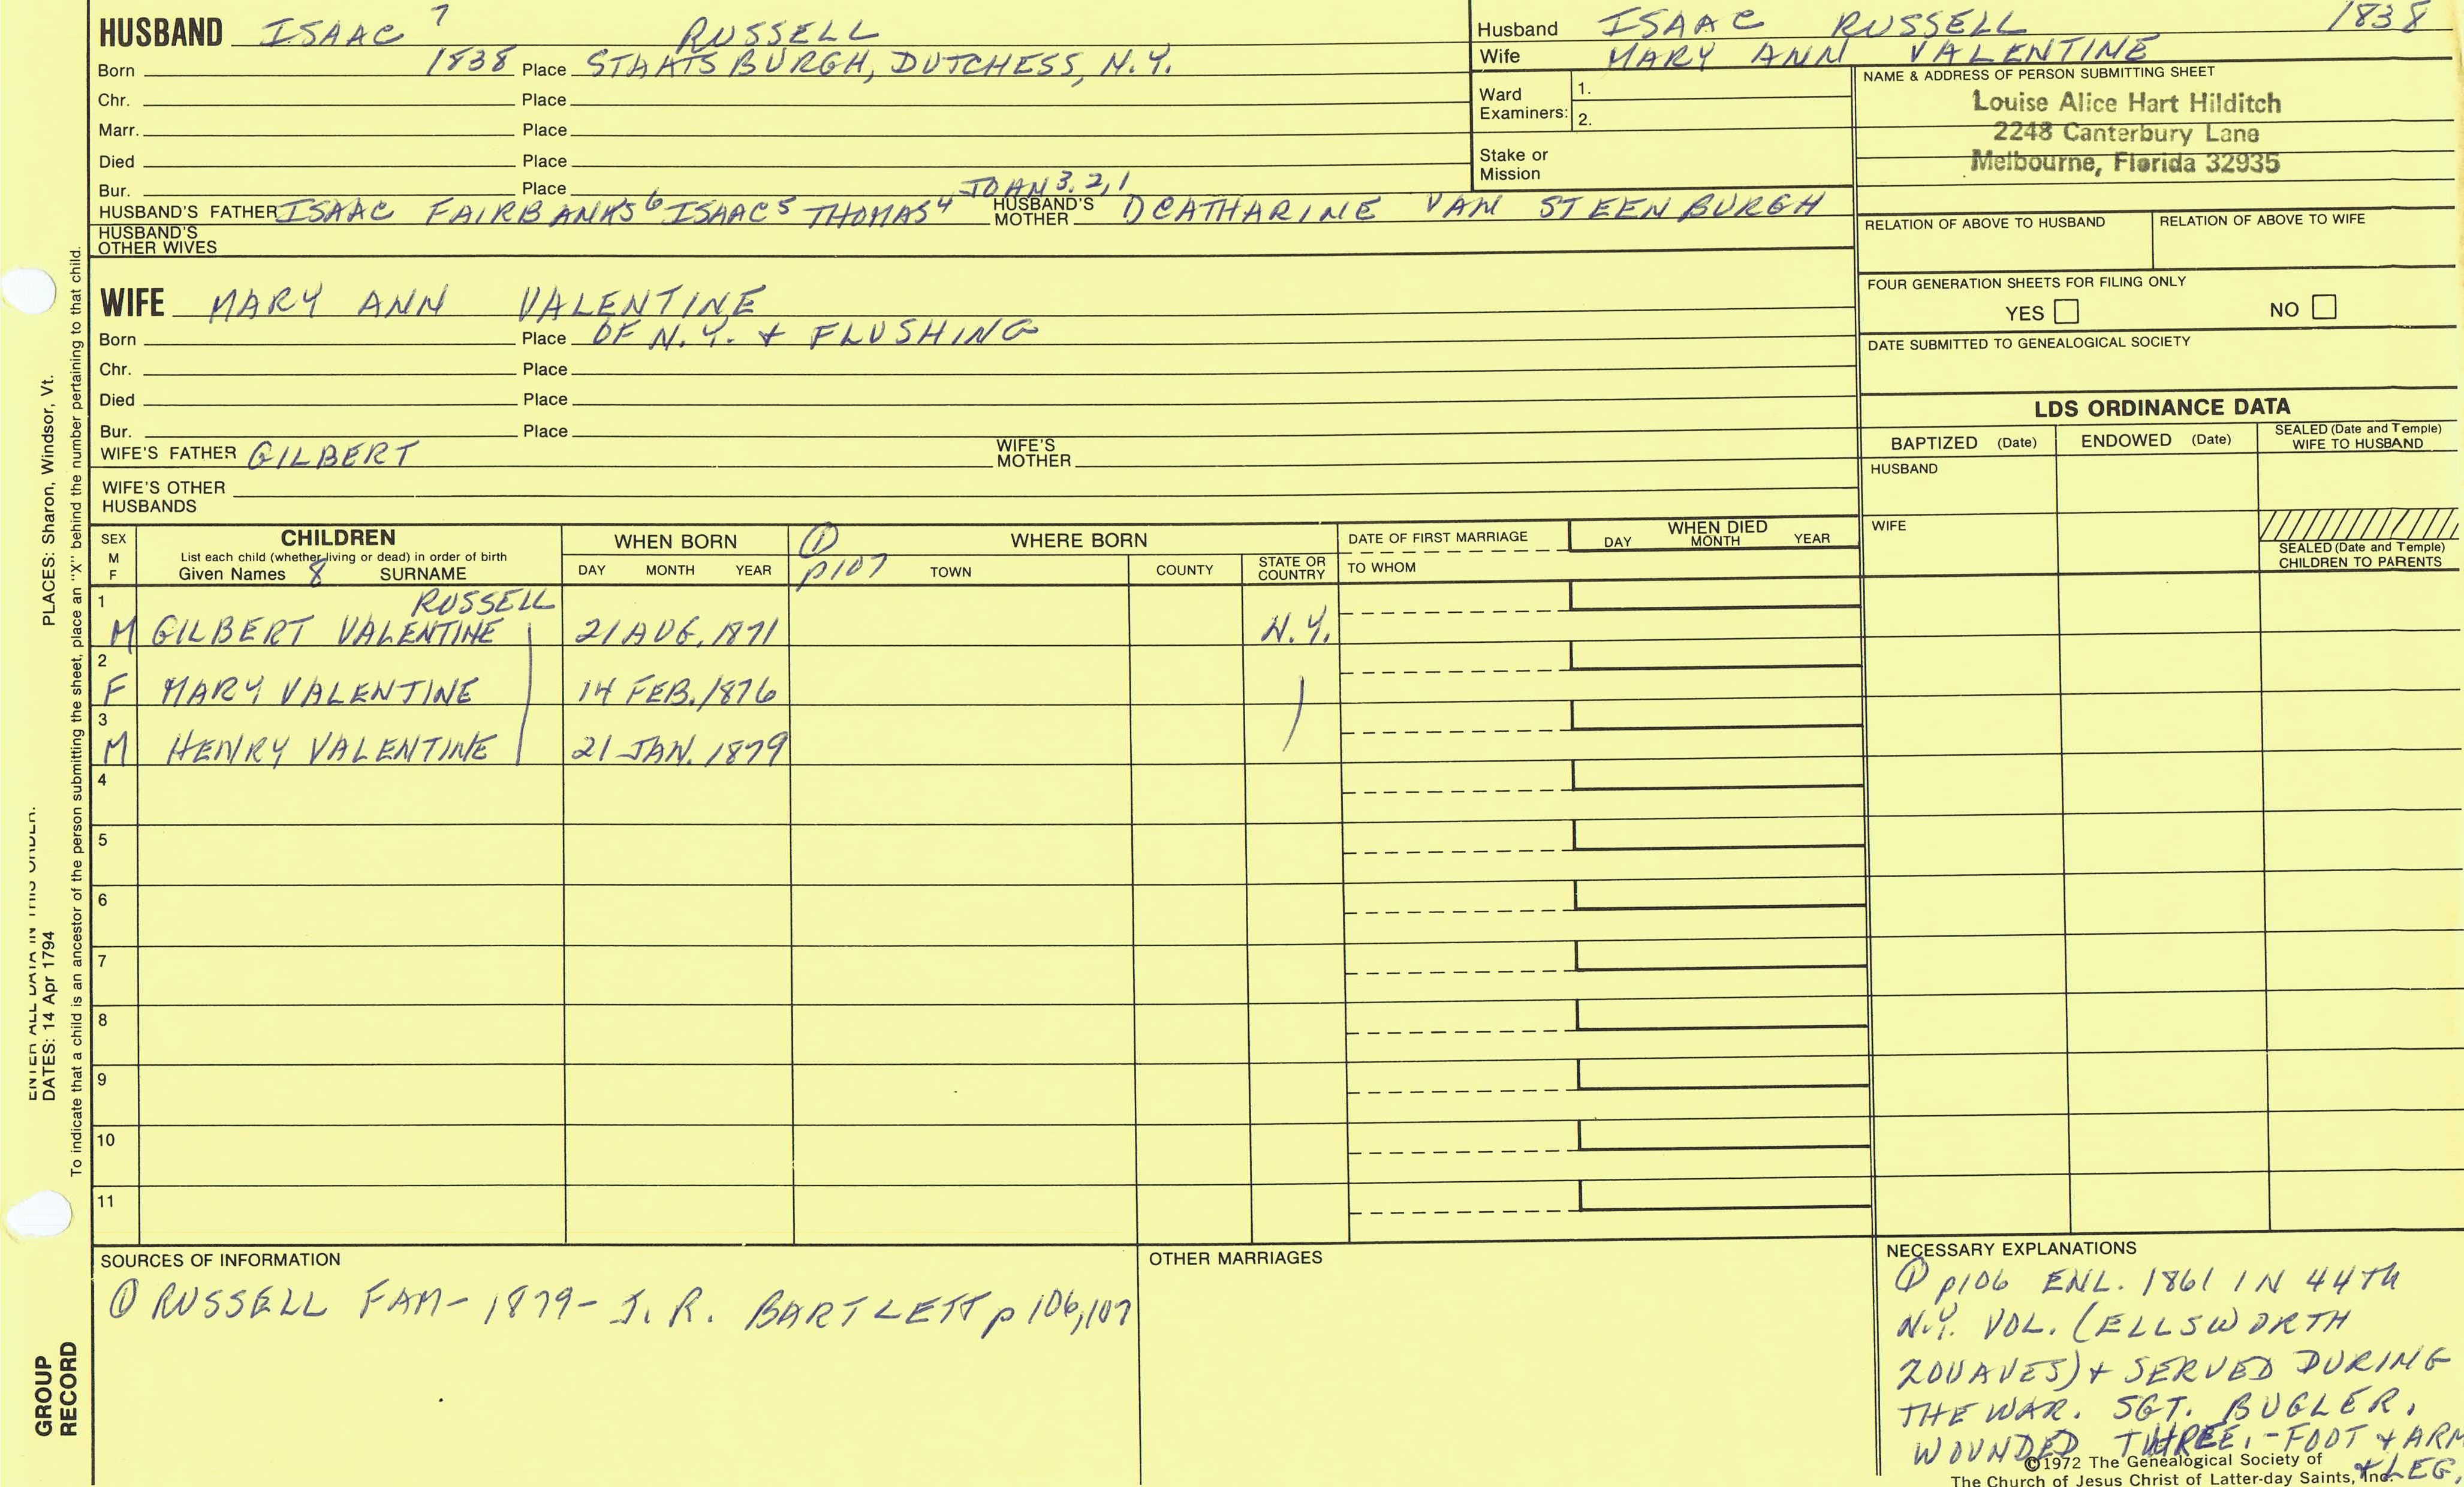 HUSBAND ISAAC 7 RUSSELL
Born 1838 Place STAATSBURGH, DUTCHESS, N.Y.
Chr. Place
Marr. Place
Died Place
Bur. Place
HUSBAND'S FATHER ISAAC FAIRBANKS 6 ISAAC 5 THOMAS 4 JOHN 3, 2, 1 HUSBAND'S MOTHER CATHARINE VAN STEENBURGH
HUSBAND'S OTHER WIVES
WIFE MARY ANN VALENTINE
Born Place OF N.Y. + FLUSHING
Chr. Place
Died Place
Bur. Place
WIFE'S FATHER GILBERT WIFE'S MOTHER
WIFE'S OTHER HUSBANDS
Husband ISAAC RUSSELL 1838
Wife MARY ANN VALENTINE
Ward Examiners: 1.
2.
Stake or Mission
NAME & ADDRESS OF PERSON SUBMITTING SHEET
Louise Alice Hart Hilditch
2248 Canterbury Lane
Melbourne, Florida 32935
RELATION OF ABOVE TO HUSBAND RELATION OF ABOVE TO WIFE
FOUR GENERATION SHEETS FOR FILING ONLY
YES NO
DATE SUBMITTED TO GENEALOGICAL SOCIETY
LDS ORDINANCE DATA
BAPTIZED (Date) ENDOWED (Date) SEALED (Date and Temple) WIFE TO HUSBAND
HUSBAND
WIFE
SEALED (Date and Temple) CHILDREN TO PARENTS
SEX M F
CHILDREN
List each child (whether living or dead) in order of birth
Given Names 8 SURNAME
WHEN BORN
DAY MONTH YEAR
① p107
WHERE BORN
TOWN COUNTY STATE OR COUNTRY
DATE OF FIRST MARRIAGE
TO WHOM
WHEN DIED
DAY MONTH YEAR
1 RUSSELL
M GILBERT VALENTINE 21 AUG. 1871 N.Y.
2
F MARY VALENTINE 14 FEB. 1876
3
M HENRY VALENTINE 21 JAN. 1879
4
5
6
7
8
9
10
11
SOURCES OF INFORMATION
① RUSSELL FAM- 1879- J. R. BARTLETT p 106,107
OTHER MARRIAGES
NECESSARY EXPLANATIONS
① p106 ENL. 1861 IN 44TH
N.Y. VOL. (ELLSWORTH
ZOUAVES) + SERVED DURING
THE WAR. SGT. BUGLER.
WOUNDED THREE.-FOOT + ARM
+ LEG.
©1972 The Genealogical Society of
The Church of Jesus Christ of Latter-day Saints, Inc.
PLACES: Sharon, Windsor, Vt.
To indicate that a child is an ancestor of the person submitting the sheet, place an "X" behind the number pertaining to that child.
ENTER ALL DATA IN THIS ORDER.
DATES: 14 Apr 1794
GROUP
RECORD